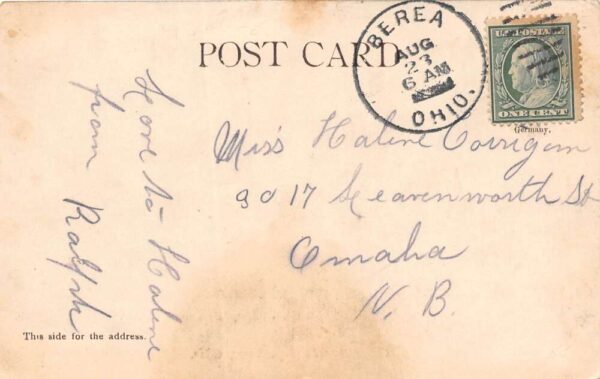 POST CARD
BEREA
AUG
23
6 AM
OHIO.
U.S. POSTAGE
ONE CENT
Germany.
Miss Halene Corrigan
3017 Leavenworth St
Omaha
N. B.
Love to Halene
from Ralph
This side for the address.